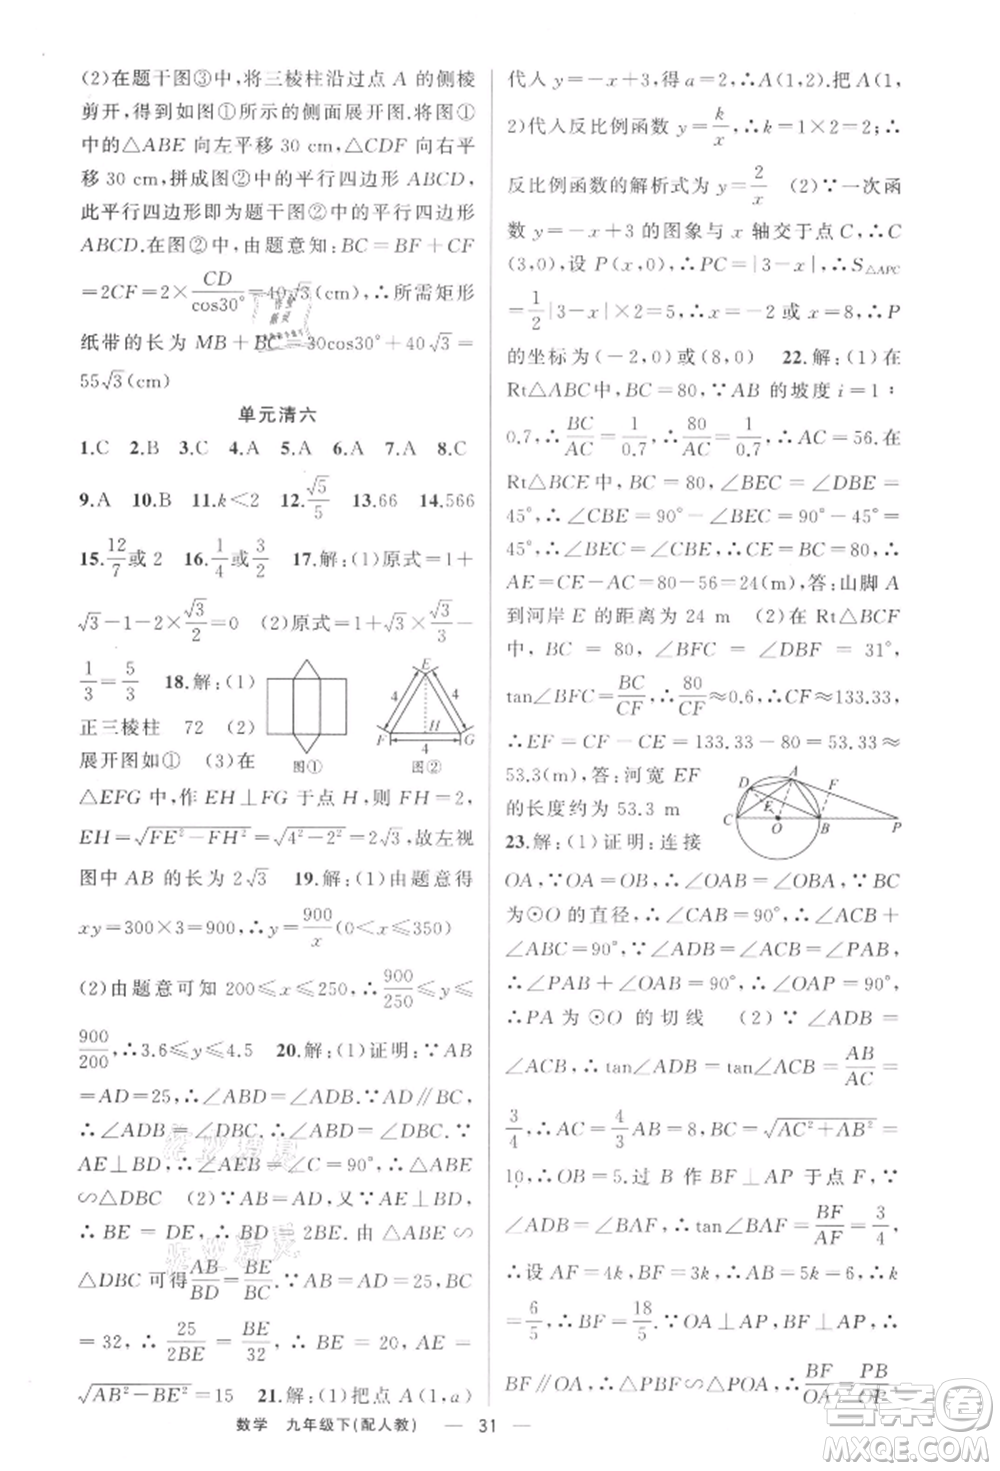 (2)在题干图③中,将三棱柱沿过点 A 的侧棱
剪开,得到如图①所示的侧面展开图.将图①
中的△ABE 向左平移 30 cm,△CDF 向右平
移 30 cm,拼成图②中的平行四边形 ABCD,
此平行四边形即为题干图②中的平行四边形
ABCD.在图②中,由题意知:BC=BF+CF
=2CF=2×CD/cos30°=40√3(cm),∴所需矩形
纸带的长为 MB+BC=30cos30°+40√3=
55√3(cm)
单元清六
1.C 2.B 3.C 4.A 5.A 6.A 7.A 8.C
9.A 10.B 11.k<2 12.√5/5 13.66 14.566
15.12/7或 2 16.1/4或3/2 17.解:(1)原式=1+
√3-1-2×√3/2=0 (2)原式=1+√3×√3/3-
1/3=5/3 18.解:(1)
正三棱柱 72 (2)
展开图如① (3)在
图① E 4 4 F H G 4 图②
△EFG 中,作 EH⊥FG 于点 H,则 FH=2,
EH=√(FE²-FH²)=√(4²-2²)=2√3,故左视
图中 AB 的长为 2√3 19.解:(1)由题意得
xy=300×3=900,∴y=900/x(0<x≤350)
(2)由题意可知 200≤x≤250,∴900/250≤y≤
900/200,∴3.6≤y≤4.5 20.解:(1)证明:∵AB
=AD=25,∴∠ABD=∠ADB,∵AD∥BC,
∴∠ADB=∠DBC,∴∠ABD=∠DBC.∵
AE⊥BD,∴∠AEB=∠C=90°,∴△ABE
∽△DBC (2)∵AB=AD,又∵AE⊥BD,
∴BE=DE,∴BD=2BE.由△ABE∽
△DBC 可得AB/BD=BE/BC,∵AB=AD=25,BC
=32,∴25/2BE=BE/32,∴BE=20,AE=
√(AB²-BE²)=15 21.解:(1)把点 A(1,a)
代入 y=-x+3,得 a=2,∴A(1,2).把 A(1,
2)代人反比例函数 y=k/x,∴k=1×2=2;∴
反比例函数的解析式为 y=2/x (2)∵一次函
数 y=-x+3 的图象与 x 轴交于点 C,∴C
(3,0),设 P(x,0),∴PC=|3-x|,∴S△APC
=1/2|3-x|×2=5,∴x=-2 或 x=8,∴P
的坐标为(-2,0)或(8,0) 22.解:(1)在
Rt△ABC中,BC=80,∵AB 的坡度 i=1:
0.7,∴BC/AC=1/0.7,∴80/AC=1/0.7,∴AC=56.在
Rt△BCE 中,BC=80,∠BEC=∠DBE=
45°,∴∠CBE=90°-∠BEC=90°-45°=
45°,∴∠BEC=∠CBE,∴CE=BC=80,∴
AE=CE-AC=80-56=24(m),答:山脚 A
到河岸 E 的距离为 24 m (2)在 Rt△BCF
中,BC=80,∠BFC=∠DBF=31°,
tan∠BFC=BC/CF,∴80/CF≈0.6,∴CF≈133.33,
∴EF=CF-CE=133.33-80=53.33≈
53.3(m),答:河宽 EF
的长度约为 53.3 m
D A F E C O B P
23.解:(1)证明:连接
OA,∵OA=OB,∴∠OAB=∠OBA,∵BC
为⊙O的直径,∴∠CAB=90°,∴∠ACB+
∠ABC=90°,∵∠ADB=∠ACB=∠PAB,
∴∠PAB+∠OAB=90°,∴∠OAP=90°,
∴PA 为⊙O 的切线 (2)∵∠ADB=
∠ACB,∴tan∠ADB=tan∠ACB=AB/AC=
3/4,∴AC=4/3AB=8,∴BC=√(AC²+AB²)=
10,∴OB=5.过 B 作 BF⊥AP 于点 F,∵
∠ADB=∠BAF,∴tan∠BAF=BF/AF=3/4,
∴设 AF=4k,BF=3k,∴AB=5k=6,∴k
=6/5,∴BF=18/5.∵OA⊥AP,BF⊥AP,∴
BF∥OA,∴△PBF∽△POA,∴BF/OA=PB/PO,
数学 九年级下(配人教) — 31 —
答案圈
MXQE.COM